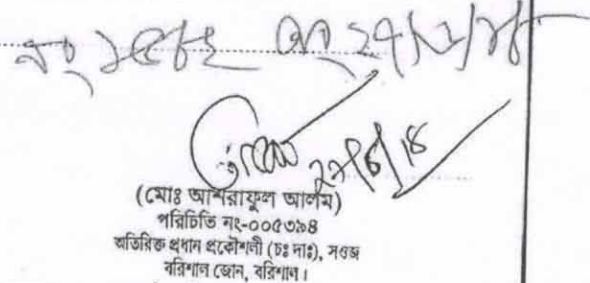 নং ১৫৮২ তাং ২৭/১২/১৮
২৭/৮/১৮
(মোঃ আশরাফুল আলম)
পরিচিতি নং-০০৫৩৯৪
অতিরিক্ত প্রধান প্রকৌশলী (চঃ দাঃ), সওজ
বরিশাল জোন, বরিশাল।